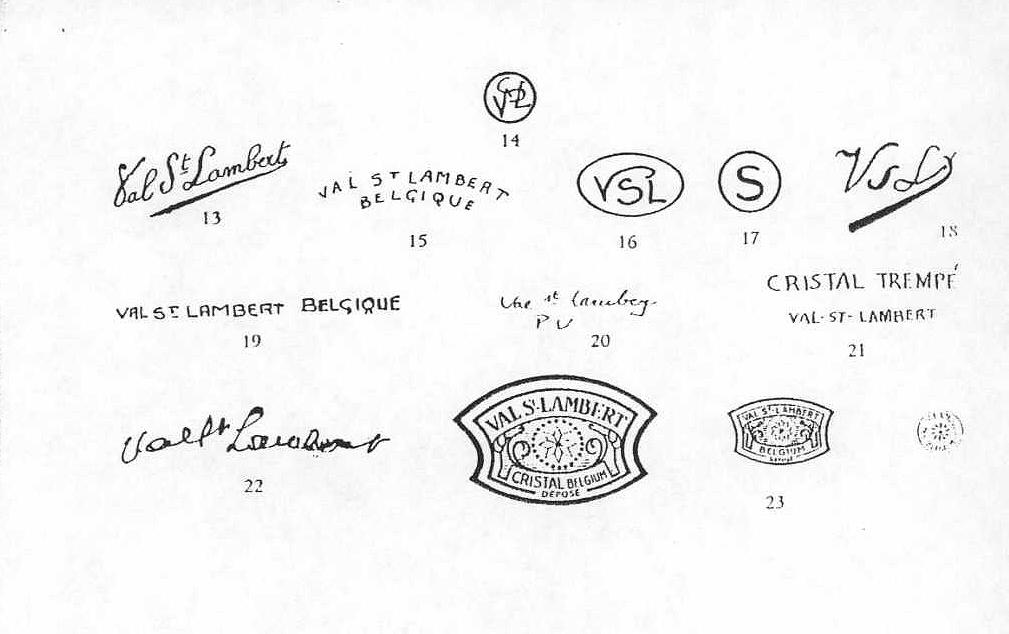 VSL
14
Val St Lambert
13
VAL ST LAMBERT
BELGIQUE
15
VSL
16
S
17
VSL
18
VAL ST LAMBERT BELGIQUE
19
Val st Lambert
PU
20
CRISTAL TREMPÉ
VAL-ST-LAMBERT
21
Val St Lambert
22
VAL ST-LAMBERT
CRISTAL BELGIUM
DÉPOSÉ
VAL ST-LAMBERT
BELGIUM
23